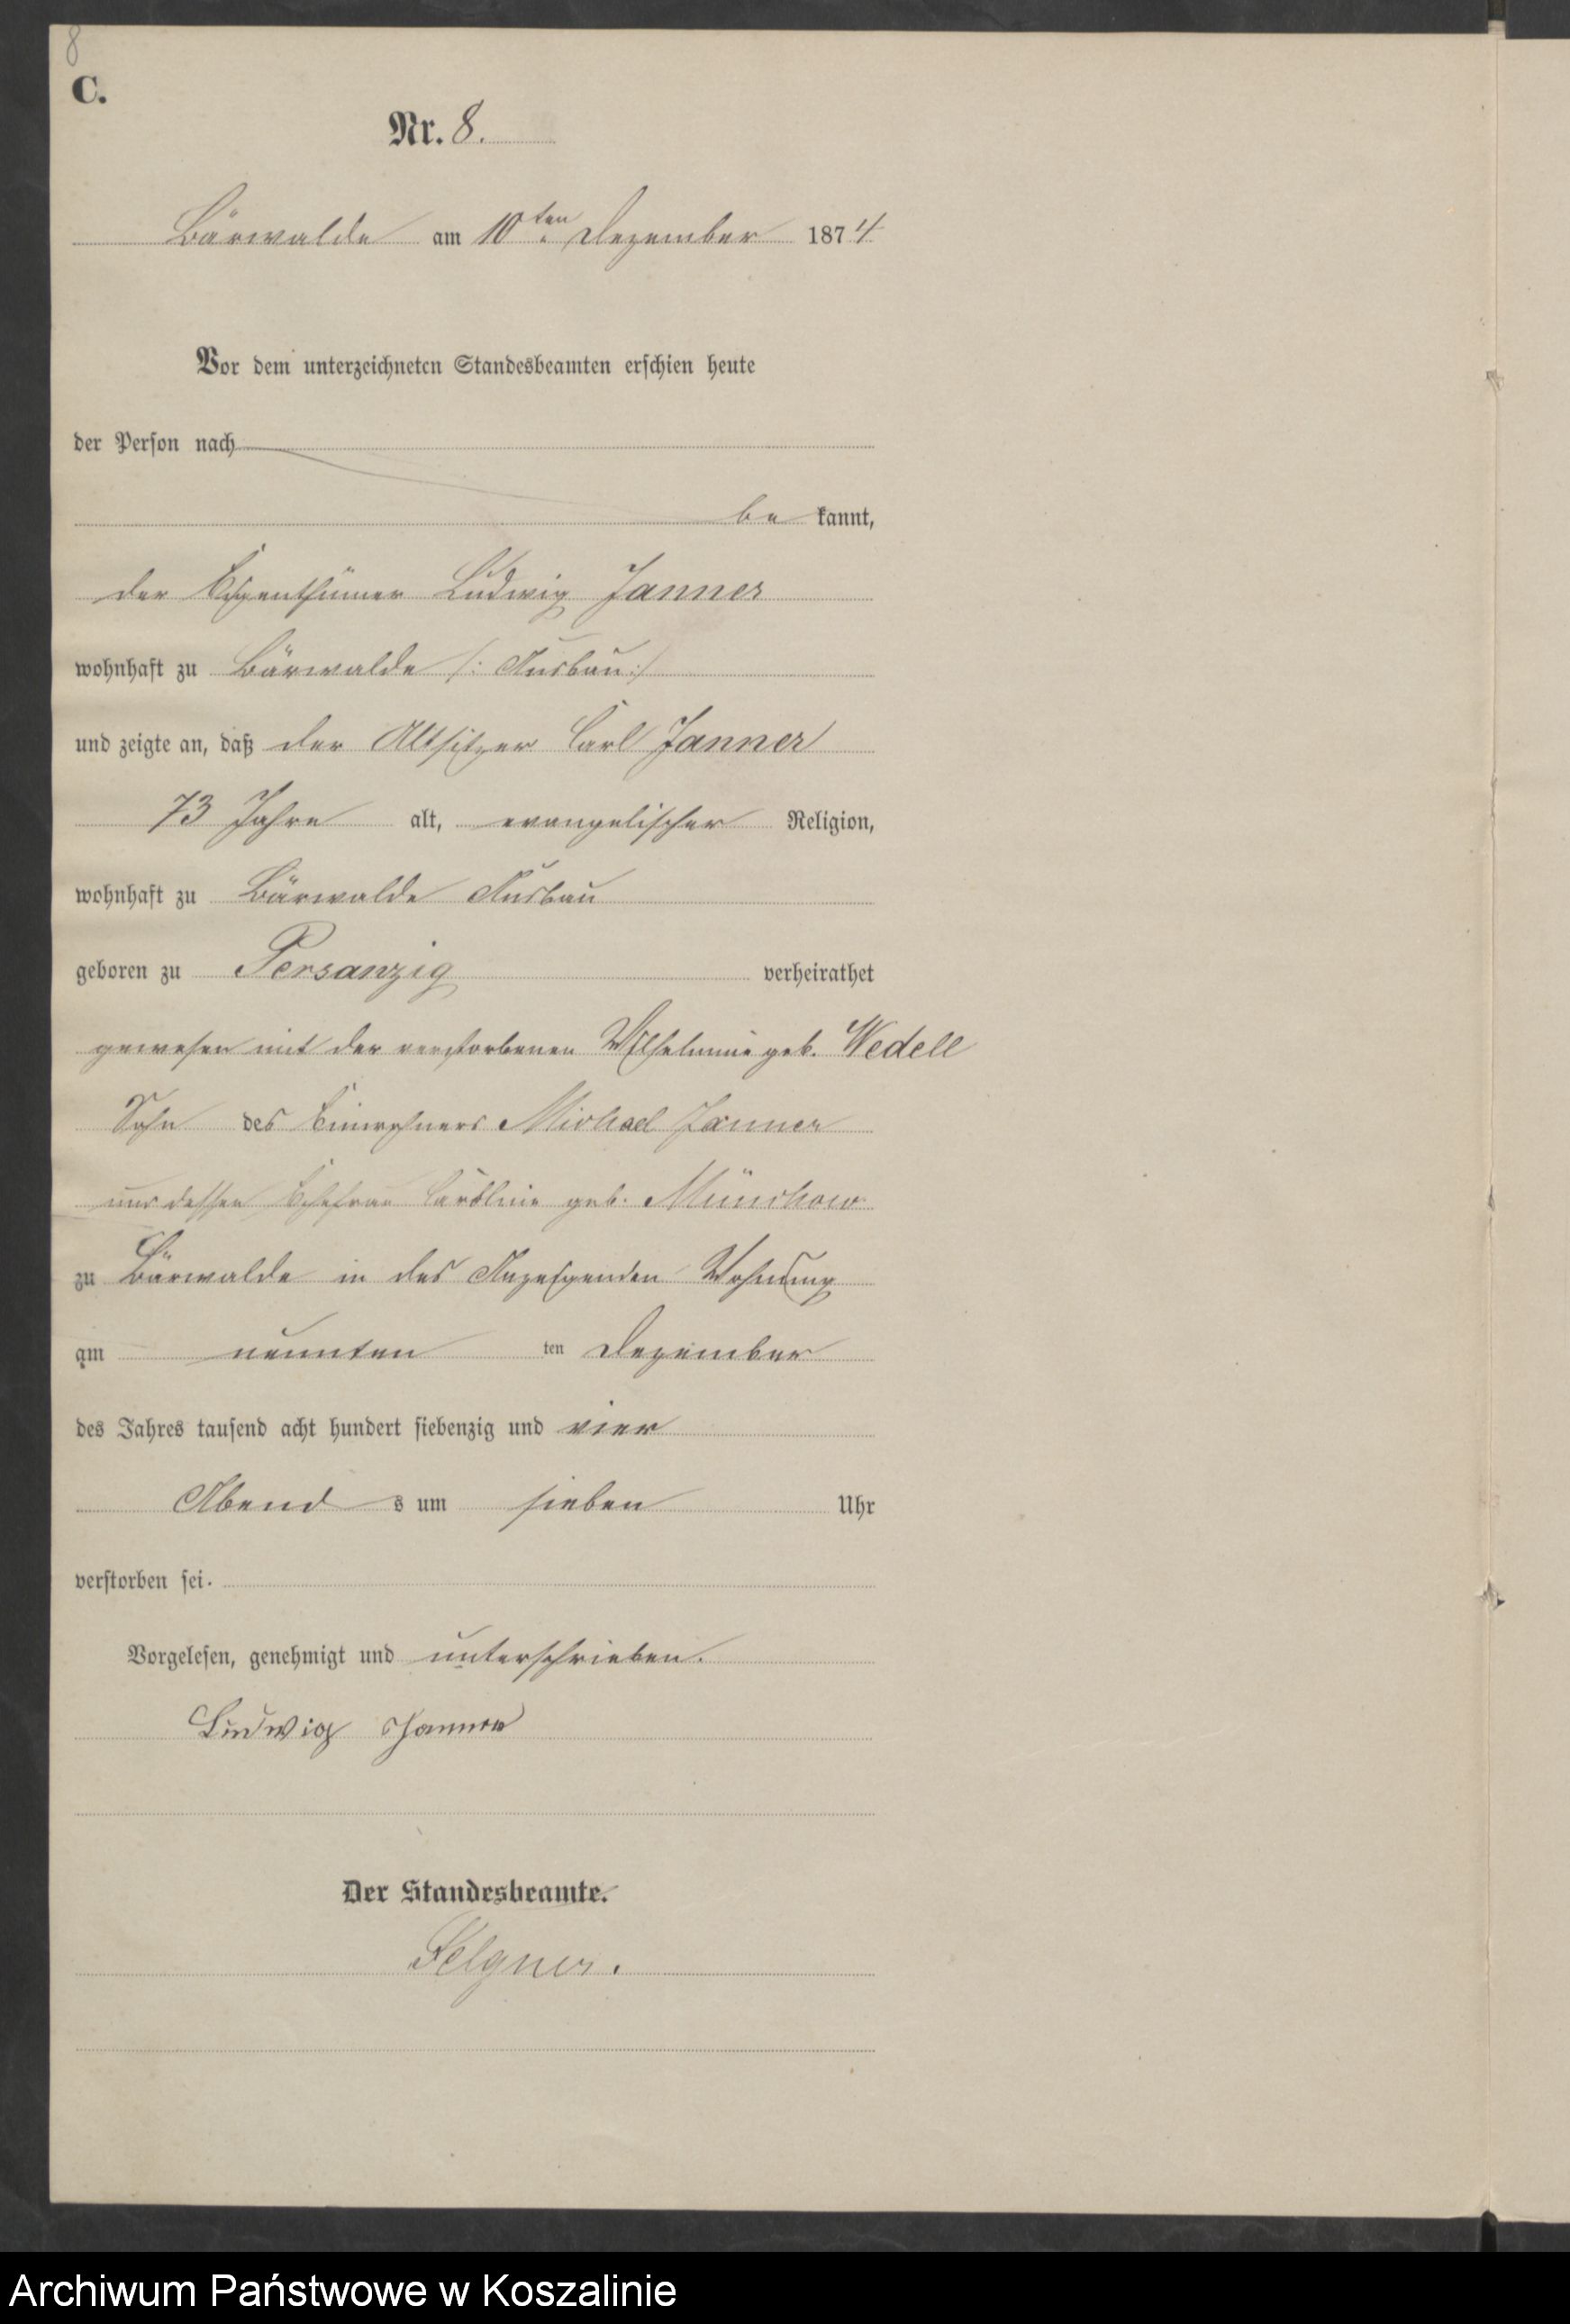 8
C.
Nr. 8.
Bärwalde am 10ten Dezember 1874
Vor dem unterzeichneten Standesbeamten erschien heute
der Person nach
be kannt,
der Eigenthümer Ludwig Janner
wohnhaft zu Bärwalde /: Ausbau :/
und zeigte an, daß der Altsitzer Carl Janner
73 Jahre alt, evangelischer Religion,
wohnhaft zu Bärwalde Ausbau
geboren zu Persanzig verheirathet
gewesen mit der verstorbenen Wilhelmine geb. Wedell
Sohn des Einwohners Michael Janner
und dessen Ehefrau Caroline geb. Münchow
zu Bärwalde in des Anzeigenden Wohnung
am neunten ten Dezember
des Jahres tausend acht hundert siebenzig und vier
Abend s um sieben Uhr
verstorben sei.
Vorgelesen, genehmigt und unterschrieben.
Ludwig Janner
Der Standesbeamte.
Felgner.
Archiwum Państwowe w Koszalinie